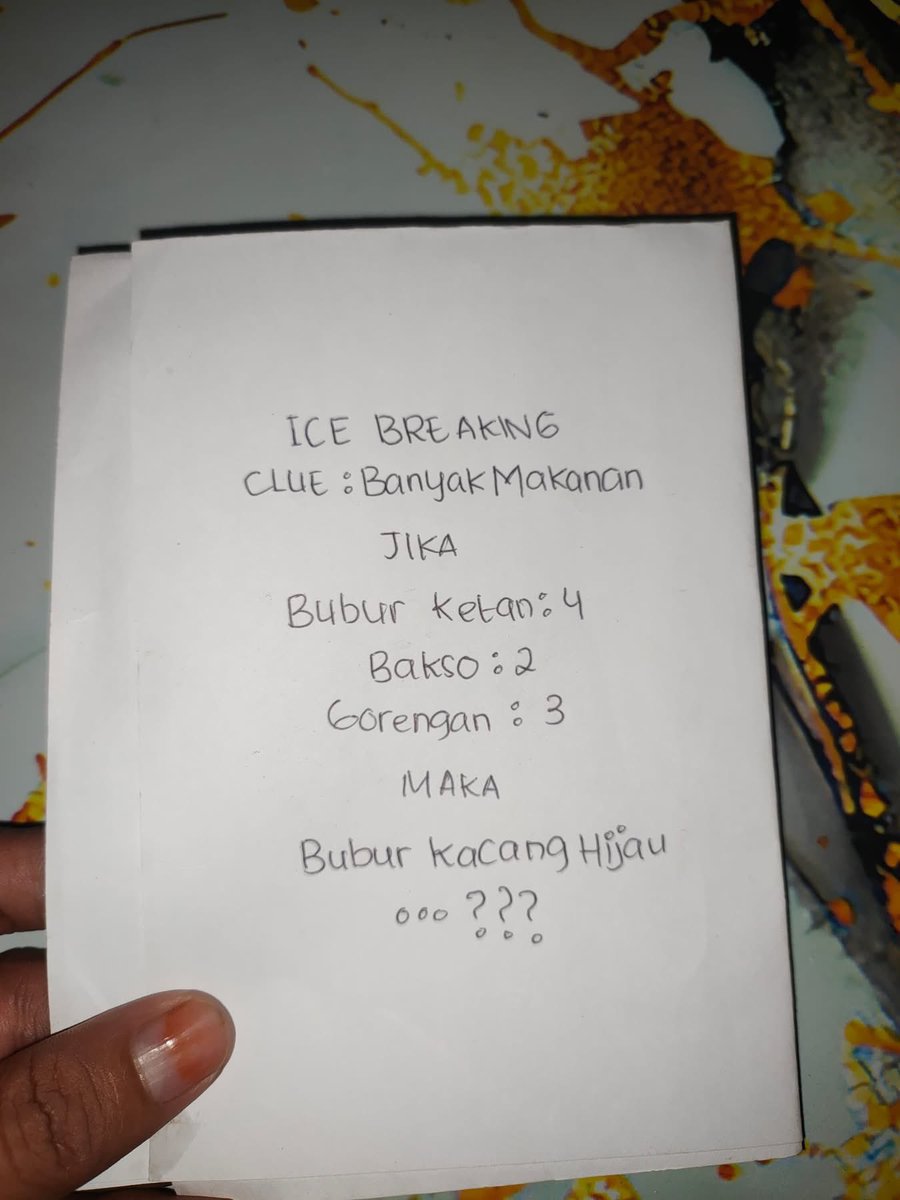 ICE BREAKING
CLUE : Banyak Makanan
JIKA
Bubur Ketan : 4
Bakso : 2
Gorengan : 3
MAKA
Bubur Kacang Hijau
... ???